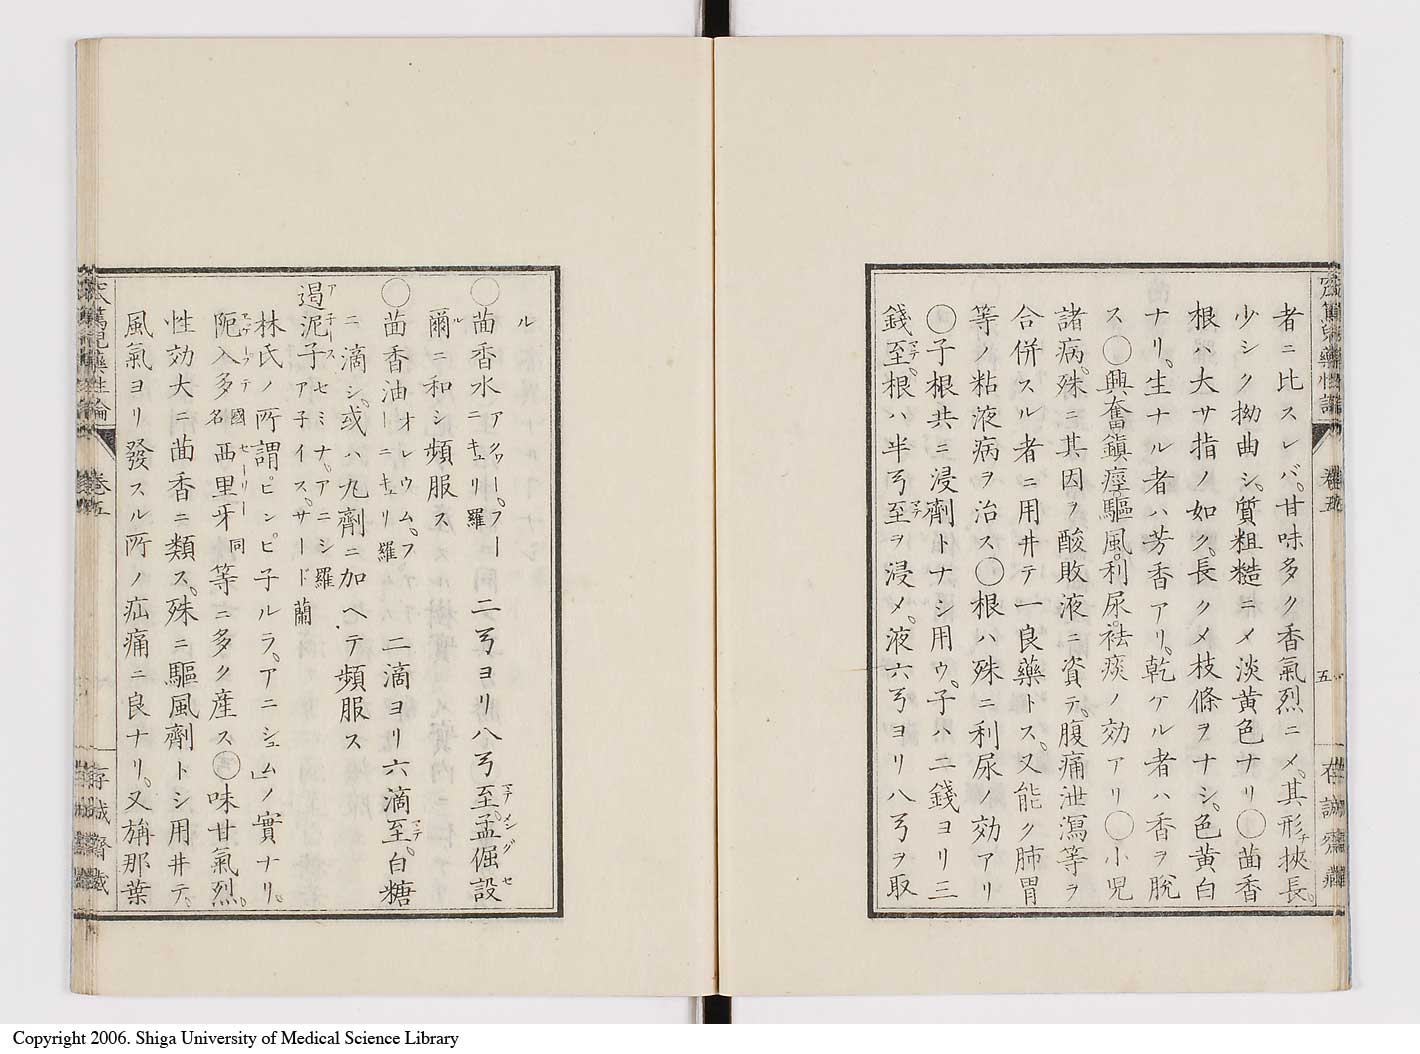 者ニ比スレバ。甘味多ク香氣烈ニメ。其形チ挾長。
少シク拗曲シ。質粗糙ニメ淡黄色ナリ〇茴香
根ハ大サ指ノ如ク。長クメ枝條ヲナシ。色黄白
ナリ。生ナル者ハ芳香アリ。乾ケル者ハ香ヲ脱
ス〇興奮鎭痙。驅風。利尿。袪痰ノ効アリ〇小児
諸病。殊ニ其因ヲ酸敗液ニ資テ。腹痛泄瀉等ヲ
合併スル者ニ用井テ一良藥トス。又能ク肺胃
等ノ粘液病ヲ治ス〇根ハ殊ニ利尿ノ効アリ
〇子根共ニ浸劑トナシ用ウ。子ハ二錢ヨリ三
錢至マデ。根ハ半弓至マデヲ浸メ。液六弓ヨリ八弓ヲ取
窊篤児藥性論 卷五
五
存誠齋藏
ル
〇茴香水アクワー。フーニキュリ羅 二弓ヨリ八弓至マデ。孟倔設メングセ
爾ルニ和シ頻服ス
〇茴香油オレウム。フーニキュリ羅 二滴ヨリ六滴至マデ。白糖
ニ滴シ。或ハ丸劑ニ加ヘテ頻服ス
遏泥子アニース セミナ。アニシ羅 アネイス。サード蘭
林氏ノ所謂ピンピ子ルラ。アニシュム」ノ實ナリ。
阨入多エゲフテ國名西里牙セーリー同等ニ多ク産ス〇味甘氣烈。
性効大ニ茴香ニ類ス。殊ニ驅風劑トシ用井テ。
風氣ヨリ發スル所ノ疝痛ニ良ナリ。又旃那葉
窊篤児藥性論 卷五
存誠齋藏
Copyright 2006. Shiga University of Medical Science Library